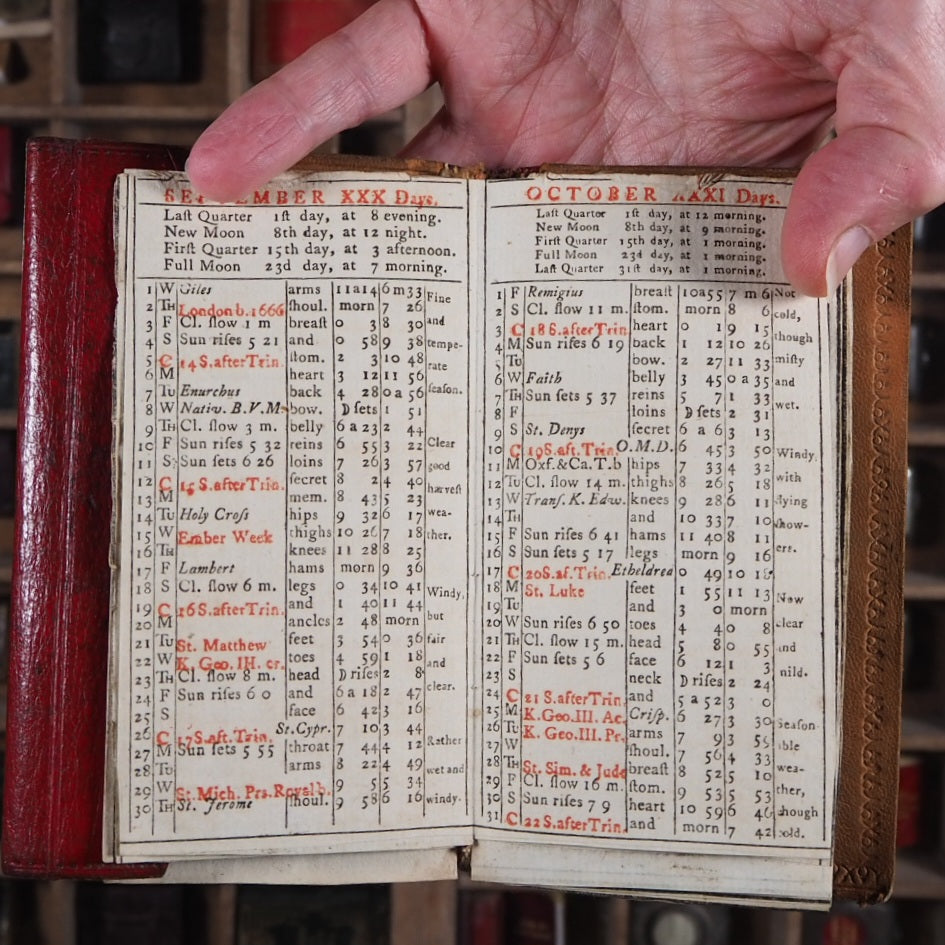 SEPTEMBER XXX Days.
Laſt Quarter 1ſt day, at 8 evening.
New Moon 8th day, at 12 night.
Firſt Quarter 15th day, at 3 afternoon.
Full Moon 23d day, at 7 morning.
1 W Giles arms 11a14 6m33 Fine
2 TH London b. 1666 ſhoul. morn 7 26
3 F Cl. ſlow 1 m breaſt 0 3 8 30 and
4 S Sun riſes 5 21 and 0 58 9 38 tempe-
5 C 14 S. after Trin. ſtom. 2 3 10 48 rate
6 M heart 3 12 11 56
7 Tu Enurchus back 4 28 0a56 ſeaſon.
8 W Nativ. B.V.M. bow. D ſets 1 51
9 TH Cl. ſlow 3 m. belly 6a23 2 44
10 F Sun riſes 5 32 reins 6 55 3 22 Clear
11 S Sun ſets 6 26 loins 7 26 3 57 good
12 C 15 S. after Trin. ſecret 8 2 4 40 harveſt
13 M mem. 8 43 5 23
14 Tu Holy Croſs hips 9 32 6 17 wea-
15 W Ember Week thighs 10 26 7 18 ther.
16 TH knees 11 28 8 25
17 F Lambert hams morn 9 36
18 S Cl. ſlow 6 m. legs 0 34 10 41 Windy,
19 C 16 S. after Trin. and 1 40 11 44
20 M ancles 2 48 morn but
21 Tu St. Matthew feet 3 54 0 36 fair
22 W K. Geo. III. cr. toes 4 59 1 18 and
23 TH Cl. ſlow 8 m. head D riſes 2 8
24 F Sun riſes 6 0 and 6a18 2 47 clear.
25 S face 6 42 3 16
26 C 17 S. aft. Trin. St. Cypr. 7 10 3 44
27 M Sun ſets 5 55 throat 7 44 4 12 Rather
28 Tu arms 8 22 4 49 wet and
29 W St. Mich. Prs. Royal b. 9 5 5 34
30 TH St. Jerome ſhoul. 9 58 6 16 windy.
OCTOBER XXXI Days.
Laſt Quarter 1ſt day, at 12 morning.
New Moon 8th day, at 9 morning.
Firſt Quarter 15th day, at 1 morning.
Full Moon 23d day, at 1 morning.
Laſt Quarter 31ſt day, at 1 morning.
1 F Remigius breaſt 10a55 7m6 Not
2 S Cl. ſlow 11 m. ſtom. morn 8 6 cold,
3 C 18 S. after Trin. heart 0 1 9 15
4 M Sun riſes 6 19 back 1 12 10 26 though
5 Tu bow. 2 27 11 33 miſty
6 W Faith belly 3 45 0a35 and
7 TH Sun ſets 5 37 reins 5 7 1 33
8 F loins D ſets 2 31 wet.
9 S St. Denys ſecret 6a6 3 13
10 C 19 S. aft. Trin. O.M.D. 6 45 3 50 Windy,
11 M Oxf. & Ca. T. b hips 7 33 4 32
12 Tu Cl. ſlow 14 m. thighs 8 26 5 18 with
13 W Tranſ. K. Edw. knees 9 28 6 11 flying
14 TH and 10 33 7 10 ſhow-
15 F Sun riſes 6 41 hams 11 40 8 11
16 S Sun ſets 5 17 legs morn 9 16 ers.
17 C 20 S. af. Trin. Etheldrea 0 49 10 18
18 M St. Luke feet 1 55 11 13 Now
19 Tu and 3 0 morn
20 W Sun riſes 6 50 toes 4 4 0 8 clear
21 TH Cl. ſlow 15 m. head 5 8 0 55 and
22 F Sun ſets 5 6 face 6 12 1 3
23 S neck D riſes 2 24 mild.
24 C 21 S. after Trin. and 5a52 3 0
25 M K. Geo. III. Ac. Criſp. 6 27 3 30 Seaſon-
26 Tu K. Geo. III. Pr. arms 7 9 3 55 able
27 W ſhoul. 7 56 4 33
28 TH St. Sim. & Jude breaſt 8 52 5 10 wea-
29 F Cl. ſlow 16 m. ſtom. 9 53 5 53 ther,
30 S Sun riſes 7 9 heart 10 59 6 46 though
31 C 22 S. after Trin. and morn 7 42 cold.